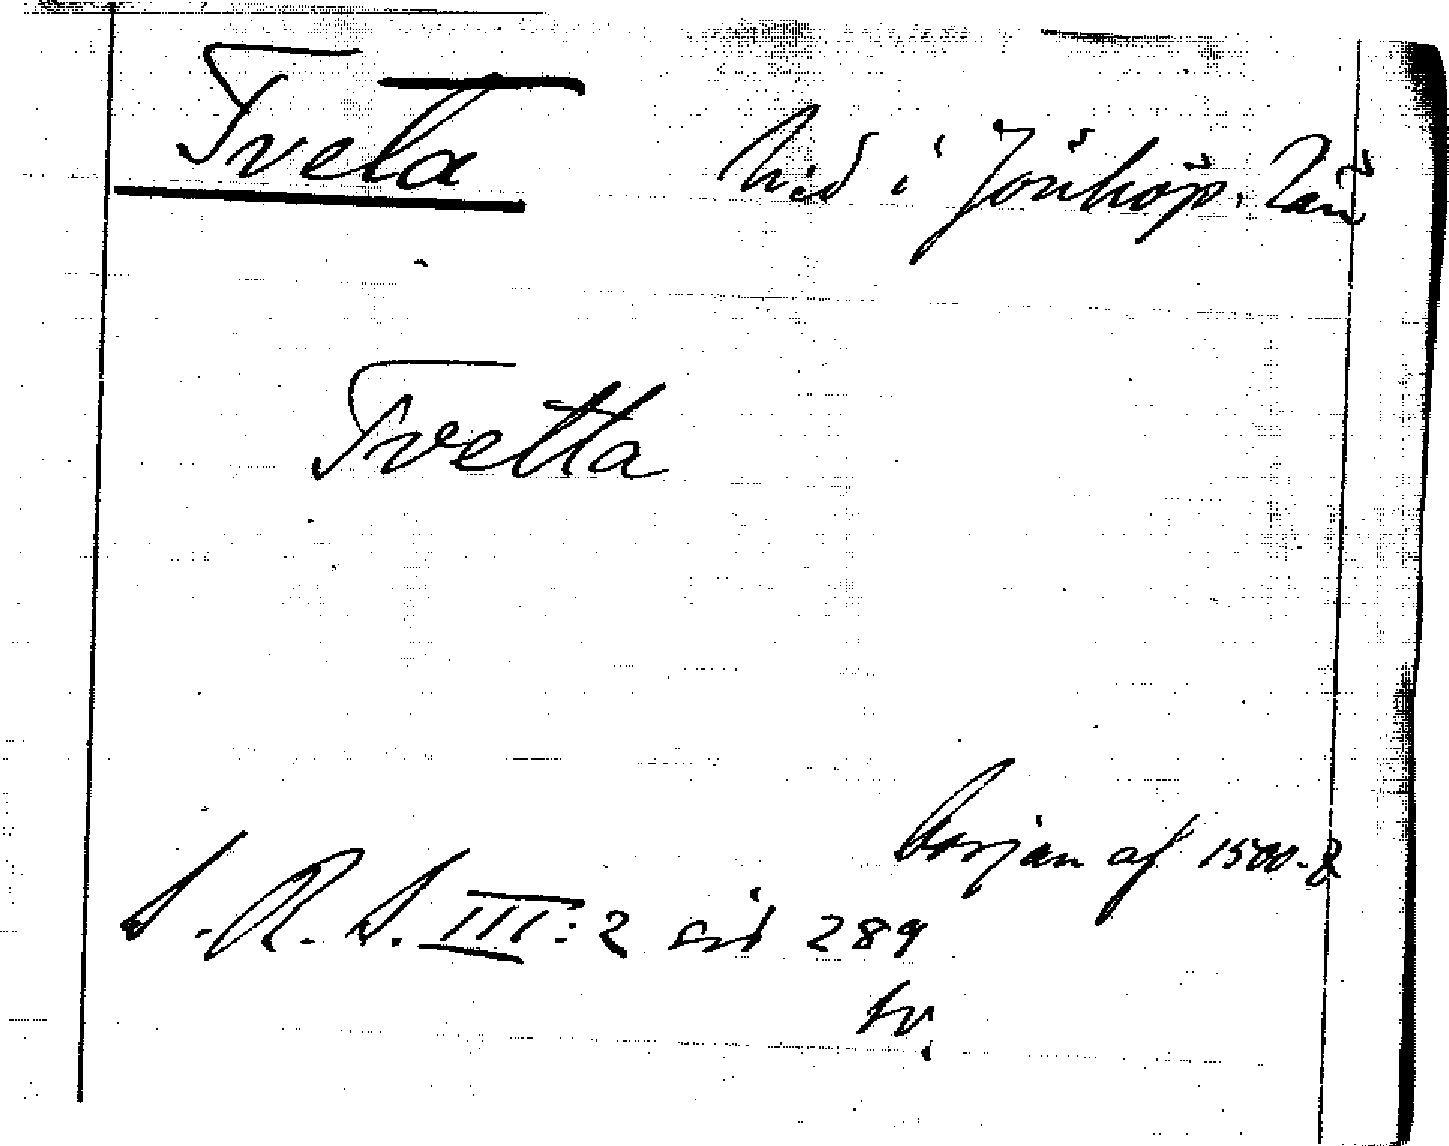 Tveta hd i Jönköp. län
Tvetta
början af 1500-t
S. R. S. III:2 sid 289
tr.